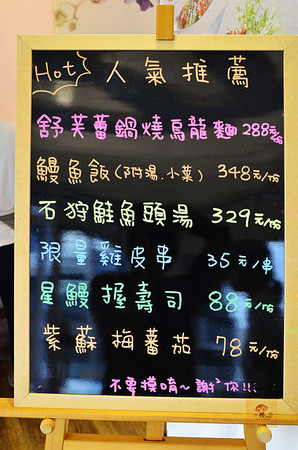 Hot 人氣推薦
舒芙蕾鍋燒烏龍麵 288元/份
鰻魚飯(附湯.小菜) 348元/份
石狩鮭魚頭湯 329元/份
限量雞皮串 35元/串
星鰻握壽司 88元/份
紫蘇梅蕃茄 78元/份
不要摸唷~謝²你!!!